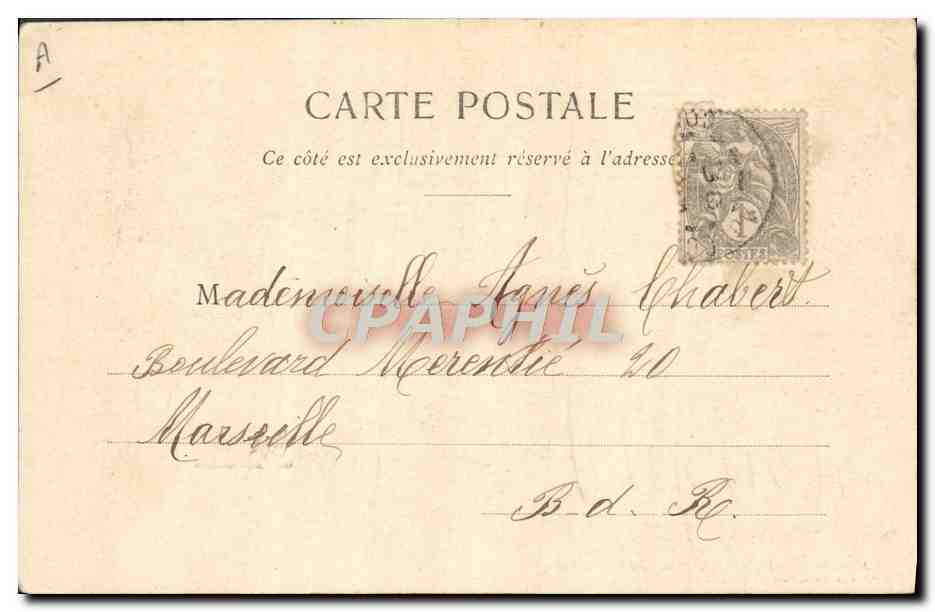 A
CARTE POSTALE
Ce côté est exclusivement réservé à l'adresse
1
POSTES
Mademoiselle Agnès Chabert.
CPAPHIL
Boulevard Merentié 20
Marseille
B. d. R.